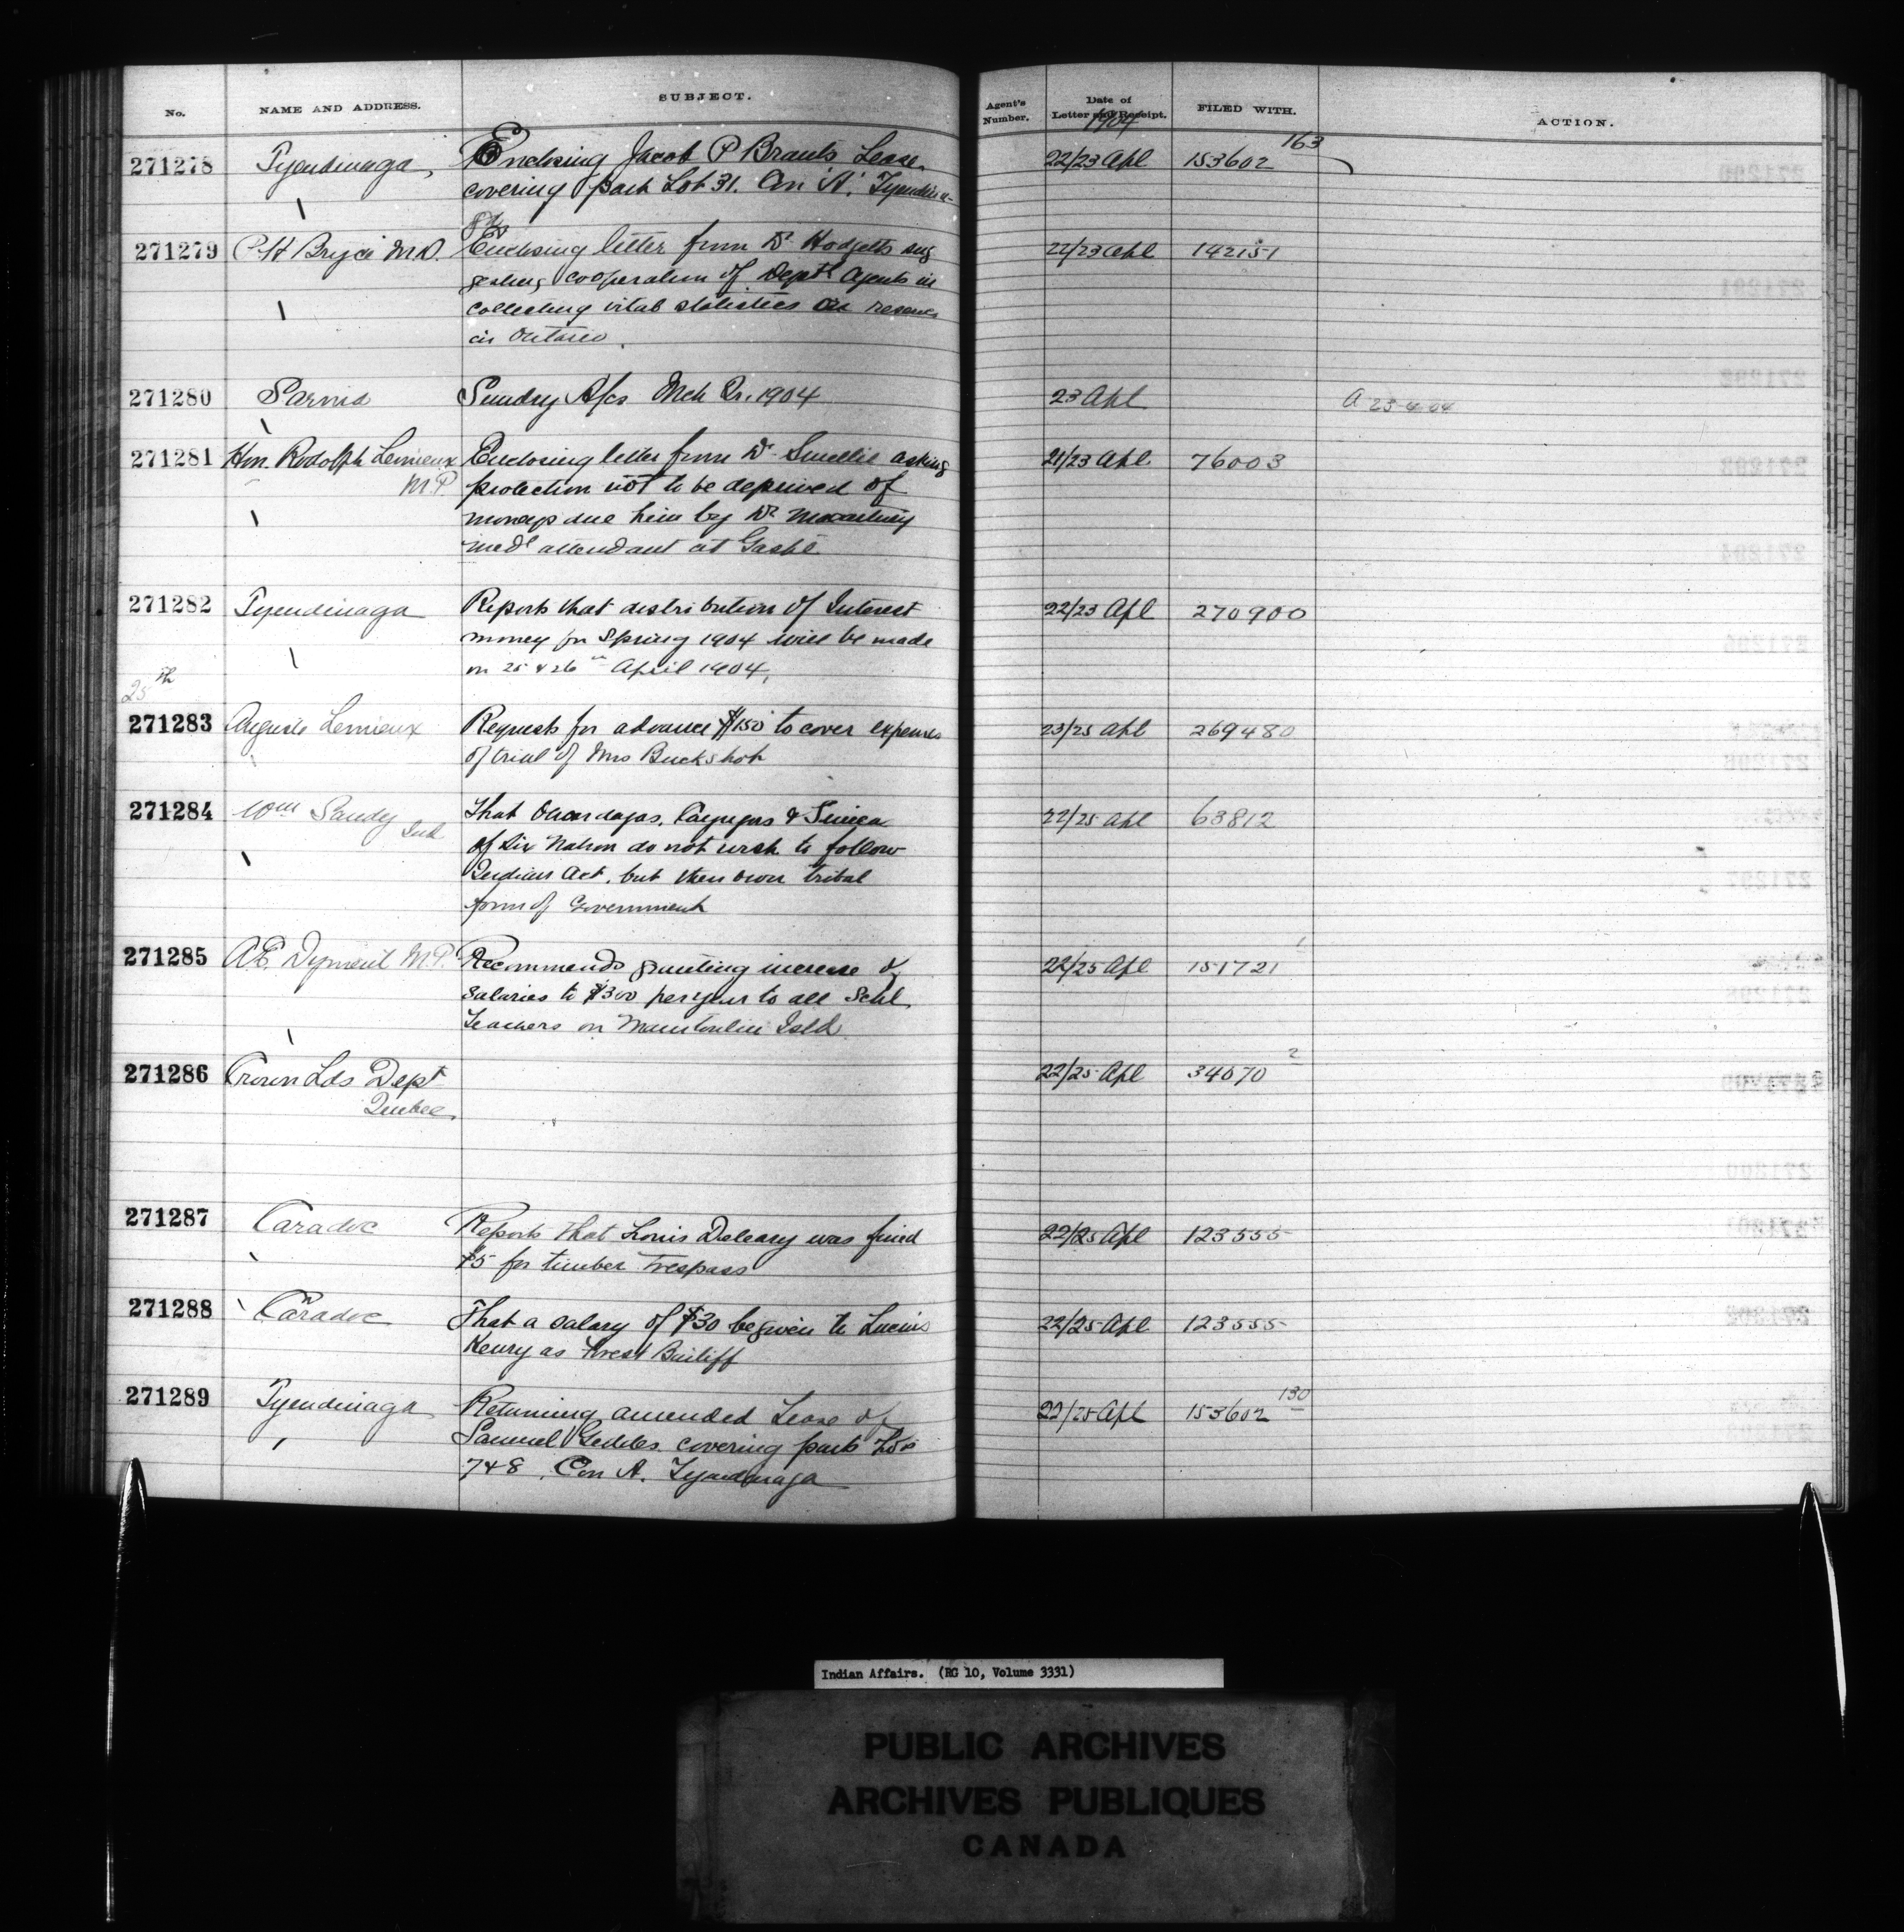 No. NAME AND ADDRESS. SUBJECT. Agent's Number. Date of Letter and Receipt. FILED WITH. ACTION.
1904
271278 Tyendinaga, Enclosing Jacob P Brants Lease 22/23 Apl 153602 163
covering part Lot 31. Con 'A'. Tyendina-
ga
271279 P. H Bryce M.D. Enclosing letter from Dr Hodgetts sug 22/23 Apl 142151
gesting cooperation of Deptl Agents in
collecting vital statistics on reserves
in Ontario.
271280 Sarnia Sundry A/cs Mch Qr. 1904 23 Apl A 23-4-04
271281 Hon. Rodolph Lemieux Enclosing letter from Dr Smellie asking 21/23 Apl 76003
M.P. protection not to be deprived of
moneys due him by Dr
medl attendant at Gaspé
271282 Tyendinaga Reports that distribution of Interest 22/23 Apl 270900
money for Spring 1904 will be made
on 25 & 26th April 1904,
25th
271283 Auguste Lemieux Requests for advance $150 to cover expenses 23/25 Apl 269480
of trial of Mrs Buckshot
271284 Wm Sandy That Onondagas, Cayugas & Seneca 22/25 Apl 63812
Ind of Six Nation do not wish to follow
Indian Act, but their own tribal
form of Government
271285 A.E. Dyment M.P. Recommends granting increase of 22/25 Apl 151721 1
salaries to $300 per year to all Schl
Teachers on Manitoulin Isld
271286 Crown Lds Dept 22/25 Apl 34070 2
Quebec.
271287 Caradoc Reports that Louis Deleary was fined 22/25 Apl 123555
$5 for timber trespass
271288 Caradoc That a salary of $30 be given to Lucius 22/25 Apl 123555
Henry as Forest Bailiff
271289 Tyendinaga Returning amended Lease of 22/25 Apl 153602 130
Samuel Geddes covering parts Lots
7 & 8, Con A. Tyendinaga
Indian Affairs. (RG 10, Volume 3331)
PUBLIC ARCHIVES
ARCHIVES PUBLIQUES
CANADA